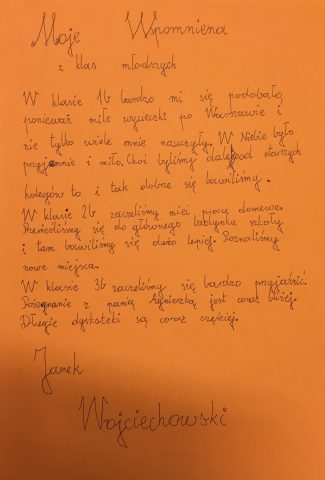 Moje Wspomniena
z klas młodszych
W klasie 1b bardzo mi się podobało
ponieważ miłe wycieczki po Warszawie i
nie tylko wiele mnie nauczyły. W Niebie było
przyjemnie i miło. Choć byliśmy daleko od starszych
kolegów to i tak dobrze się bawiliśmy.
W klasie 2b zaczeliśmy mieć prace domowe.
Przenieśliśmy się do głównego budynku szkoły
i tam bawiliśmy się dużo lepiej. Poznaliśmy
nowe miejsca.
W klasie 3b zaczeliśmy się bardzo przyjaźnić.
Pożegnanie z panią Agnieszką jest coraz bliżej.
Długie dyskoteki są coraz częściej.
Janek
Wojciechowski